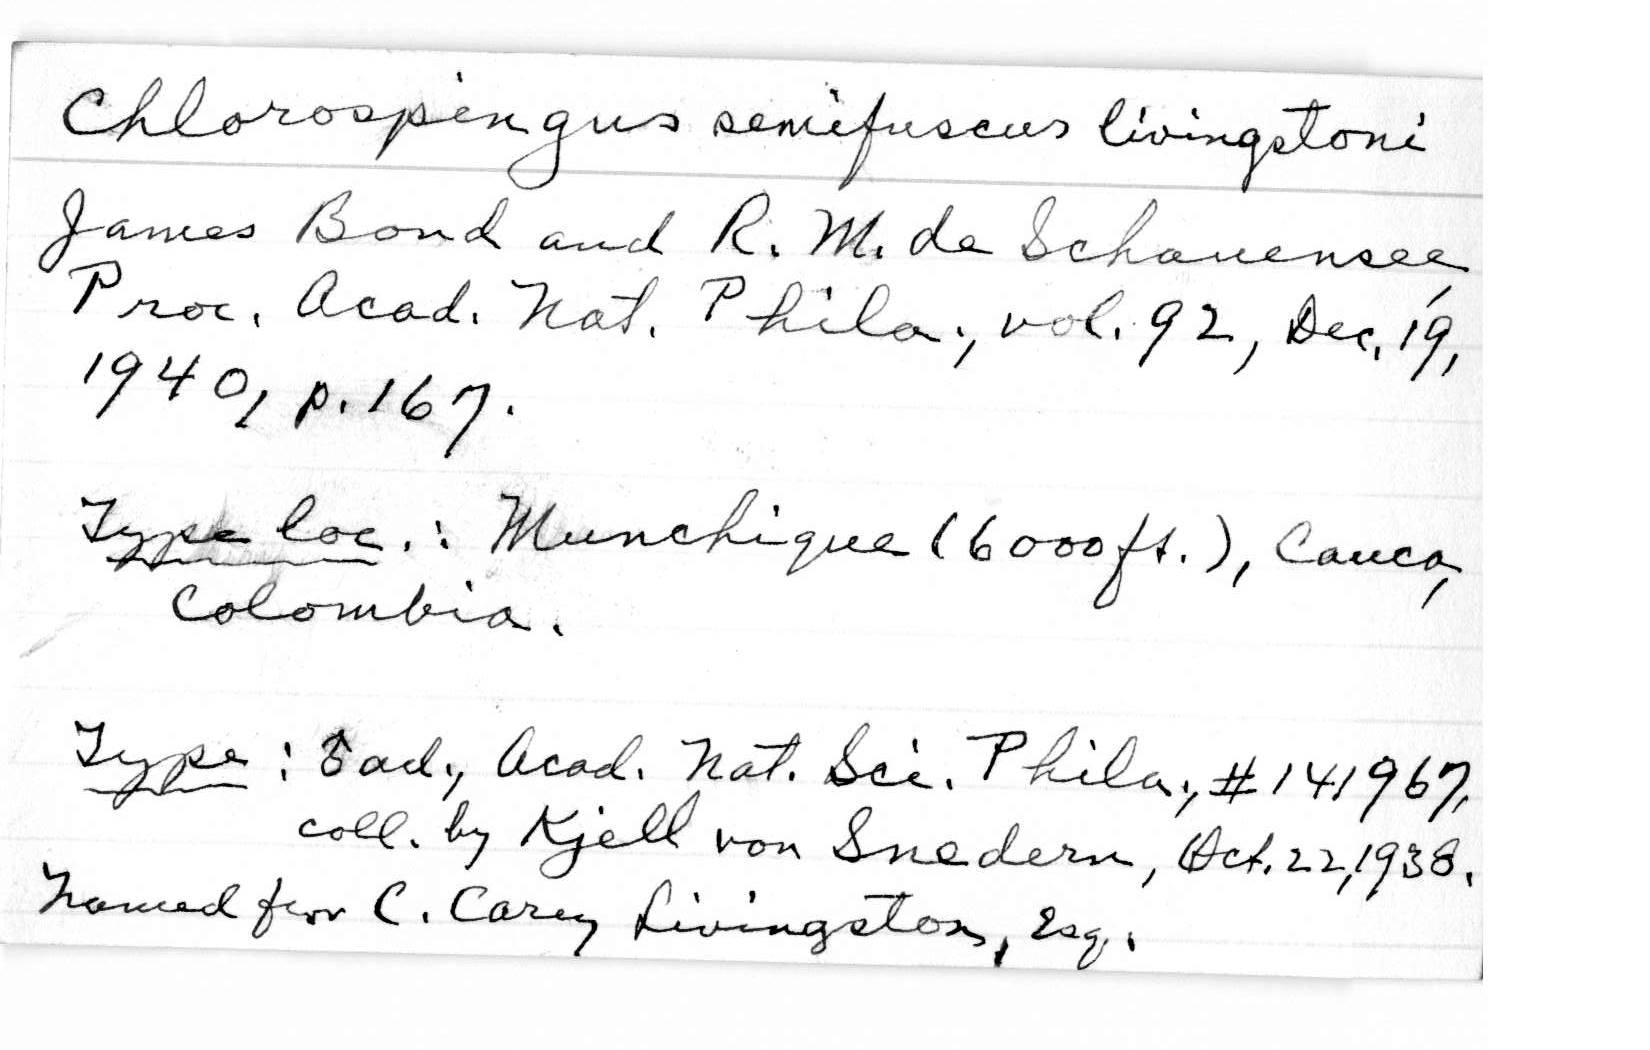 Chlorospingus semifuscus livingstoni
James Bond and R. M. de Schauensee,
Proc. Acad. Nat. Phila., vol. 92, Dec. 19,
1940, p. 167.
Type loc.: Munchique (6000ft.), Cauca,
Colombia.
Type: ♂ ad., Acad. Nat. Sci. Phila., #141967,
coll. by Kjell von Snedern, Oct. 22, 1938.
Named for C. Carey Livingston, Esq.